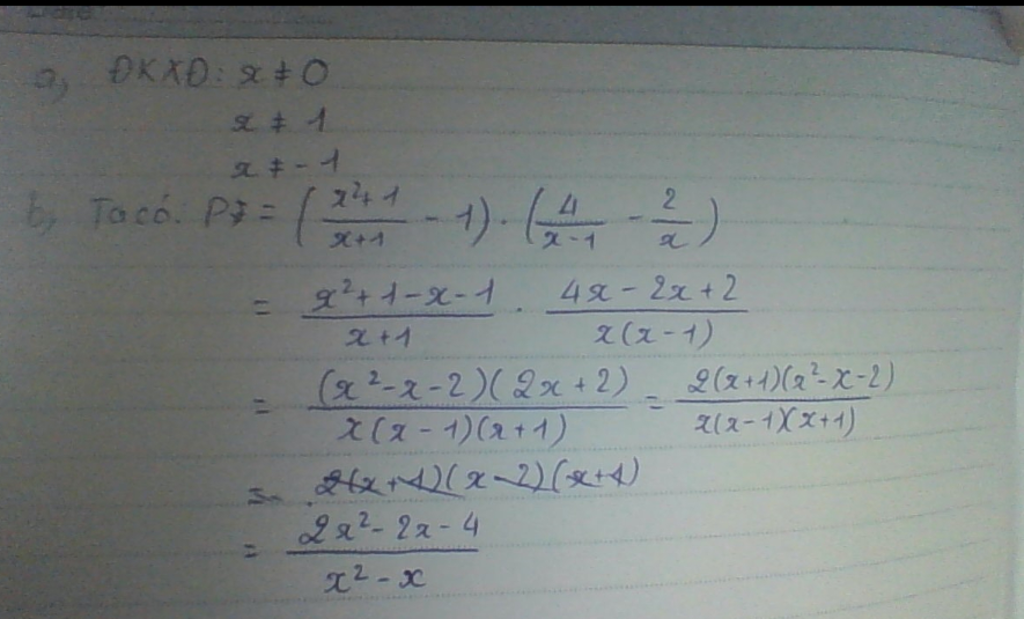 a, ĐKXĐ: x ≠ 0
x ≠ 1
x ≠ -1
b, Ta có: P = ( (x²+1)/(x+1) - 1 ) . ( 4/(x-1) - 2/x )
= (x²+1-x-1)/(x+1) . (4x-2x+2)/(x(x-1))
= (x²-x-2)(2x+2)/(x(x-1)(x+1)) = 2(x+1)(x²-x-2)/(x(x-1)(x+1))
= 2(x+1)(x-2)(x+1)
= (2x²-2x-4)/(x²-x)